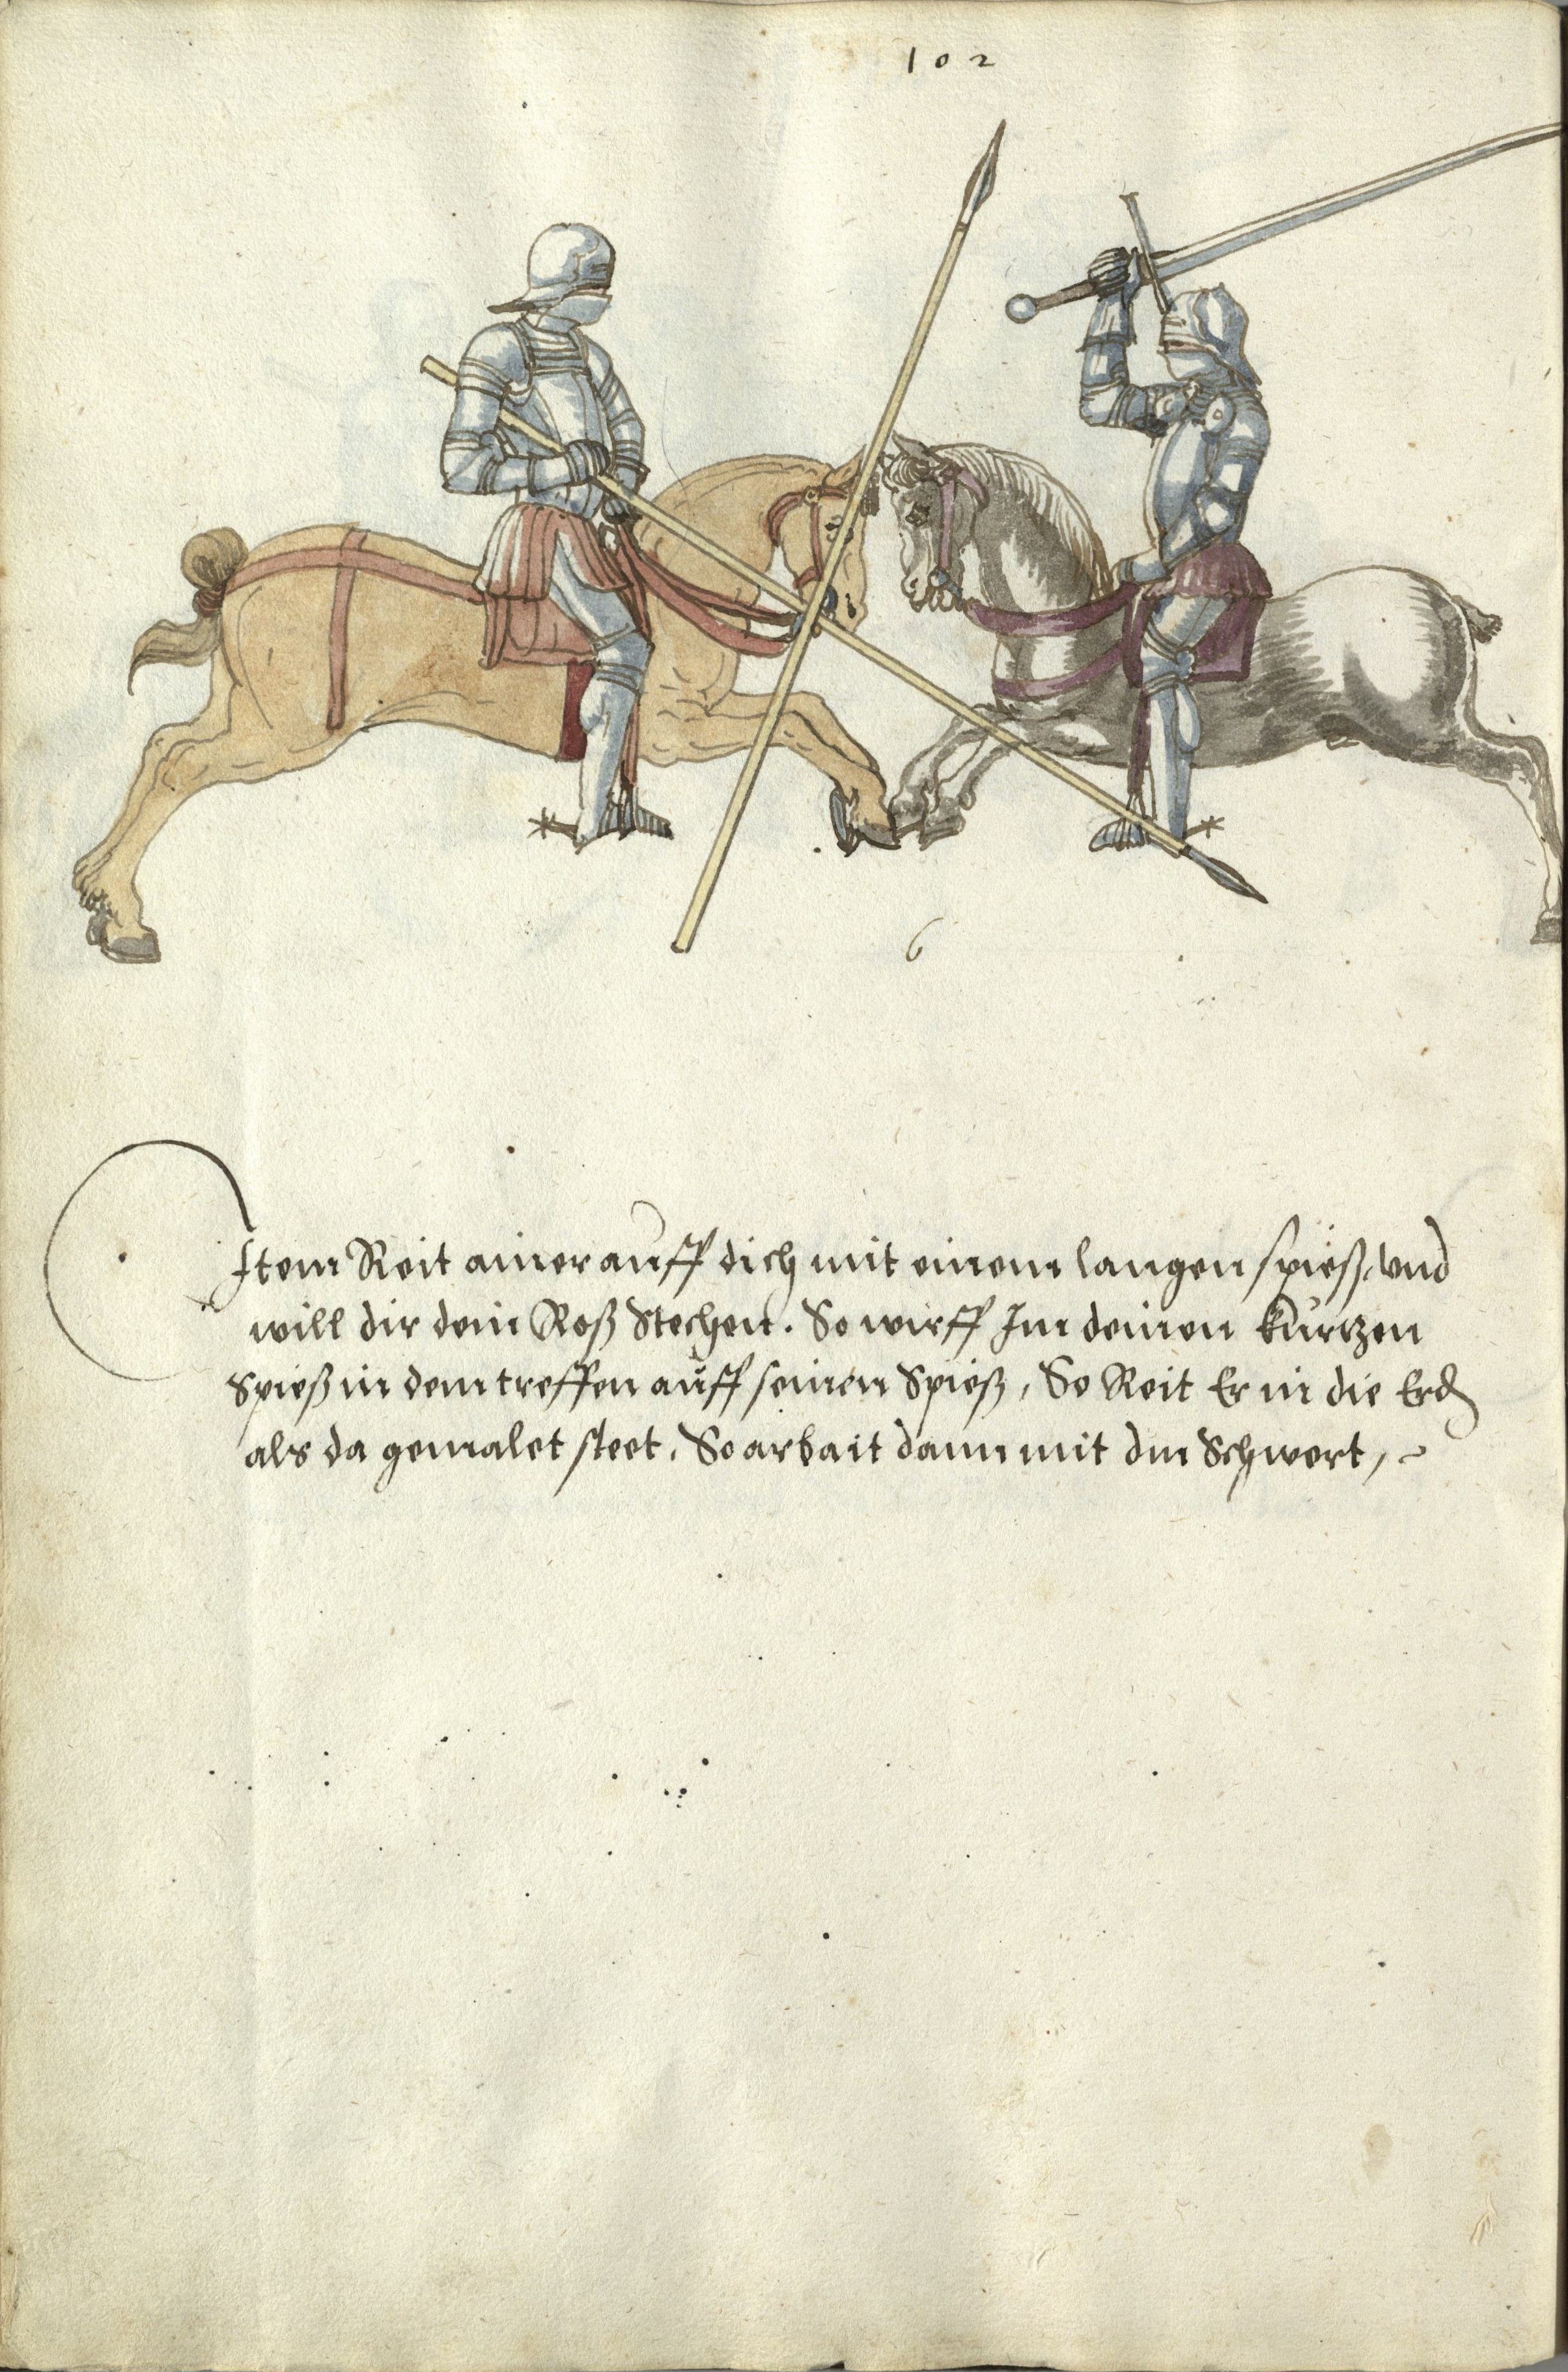 102
6
Item Reit ainer auff dich mit einem langen spieß, vnd
will dir dein Roß Stechen. So wirff Im deinen kurtzen
Spieß in dem treffen auff seinen Spieß, So Reit Er in die Erd
als da gemalet steet. So arbait dann mit dm Schwert,